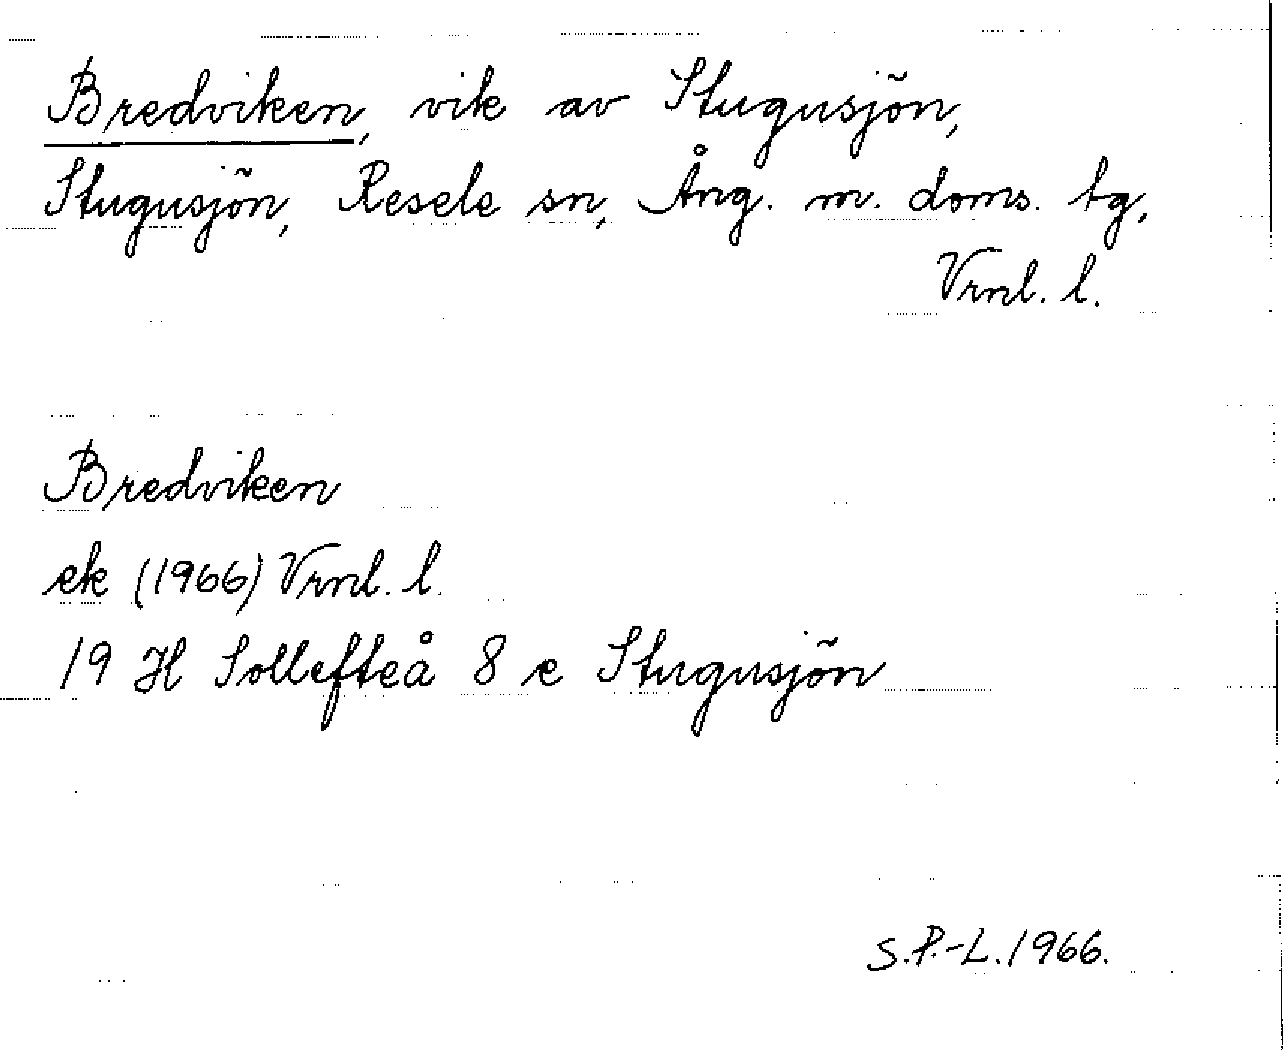 Bredviken, vik av Stugusjön,
Stugusjön, Resele sn, Ång. m. doms. tg,
Vrnl. l.
Bredviken
ek (1966) Vrnl. l.
19 H Sollefteå 8 e Stugusjön
S.P.-L. 1966.